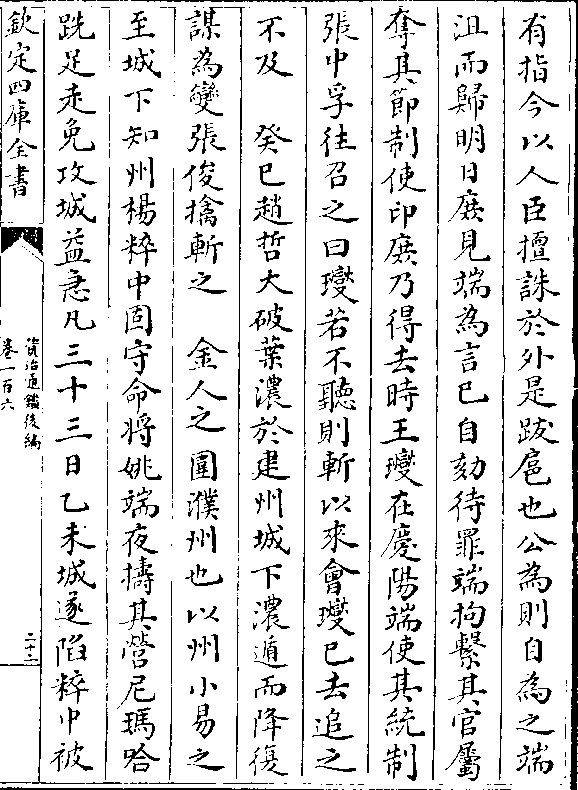 有指今以人臣擅誅於外是跋扈也公為則自為之端
沮而歸明日庶見端為言已自劾待罪端拘繫其官屬
奪其節制使印庶乃得去時王𤫉在慶陽端使其統制
張中孚往召之曰𤫉若不聽則斬以來會𤫉已去追之
不及　癸巳趙哲大破葉濃於建州城下濃遁而降復
謀為變張俊擒斬之　金人之圍濮州也以州小易之
至城下知州楊粹中固守命將姚端夜擣其營尼瑪哈
跣足走免攻城益急凡三十三日乙未城遂陷粹中被
欽定四庫全書
資治通鑑後編
卷一百六
二十二